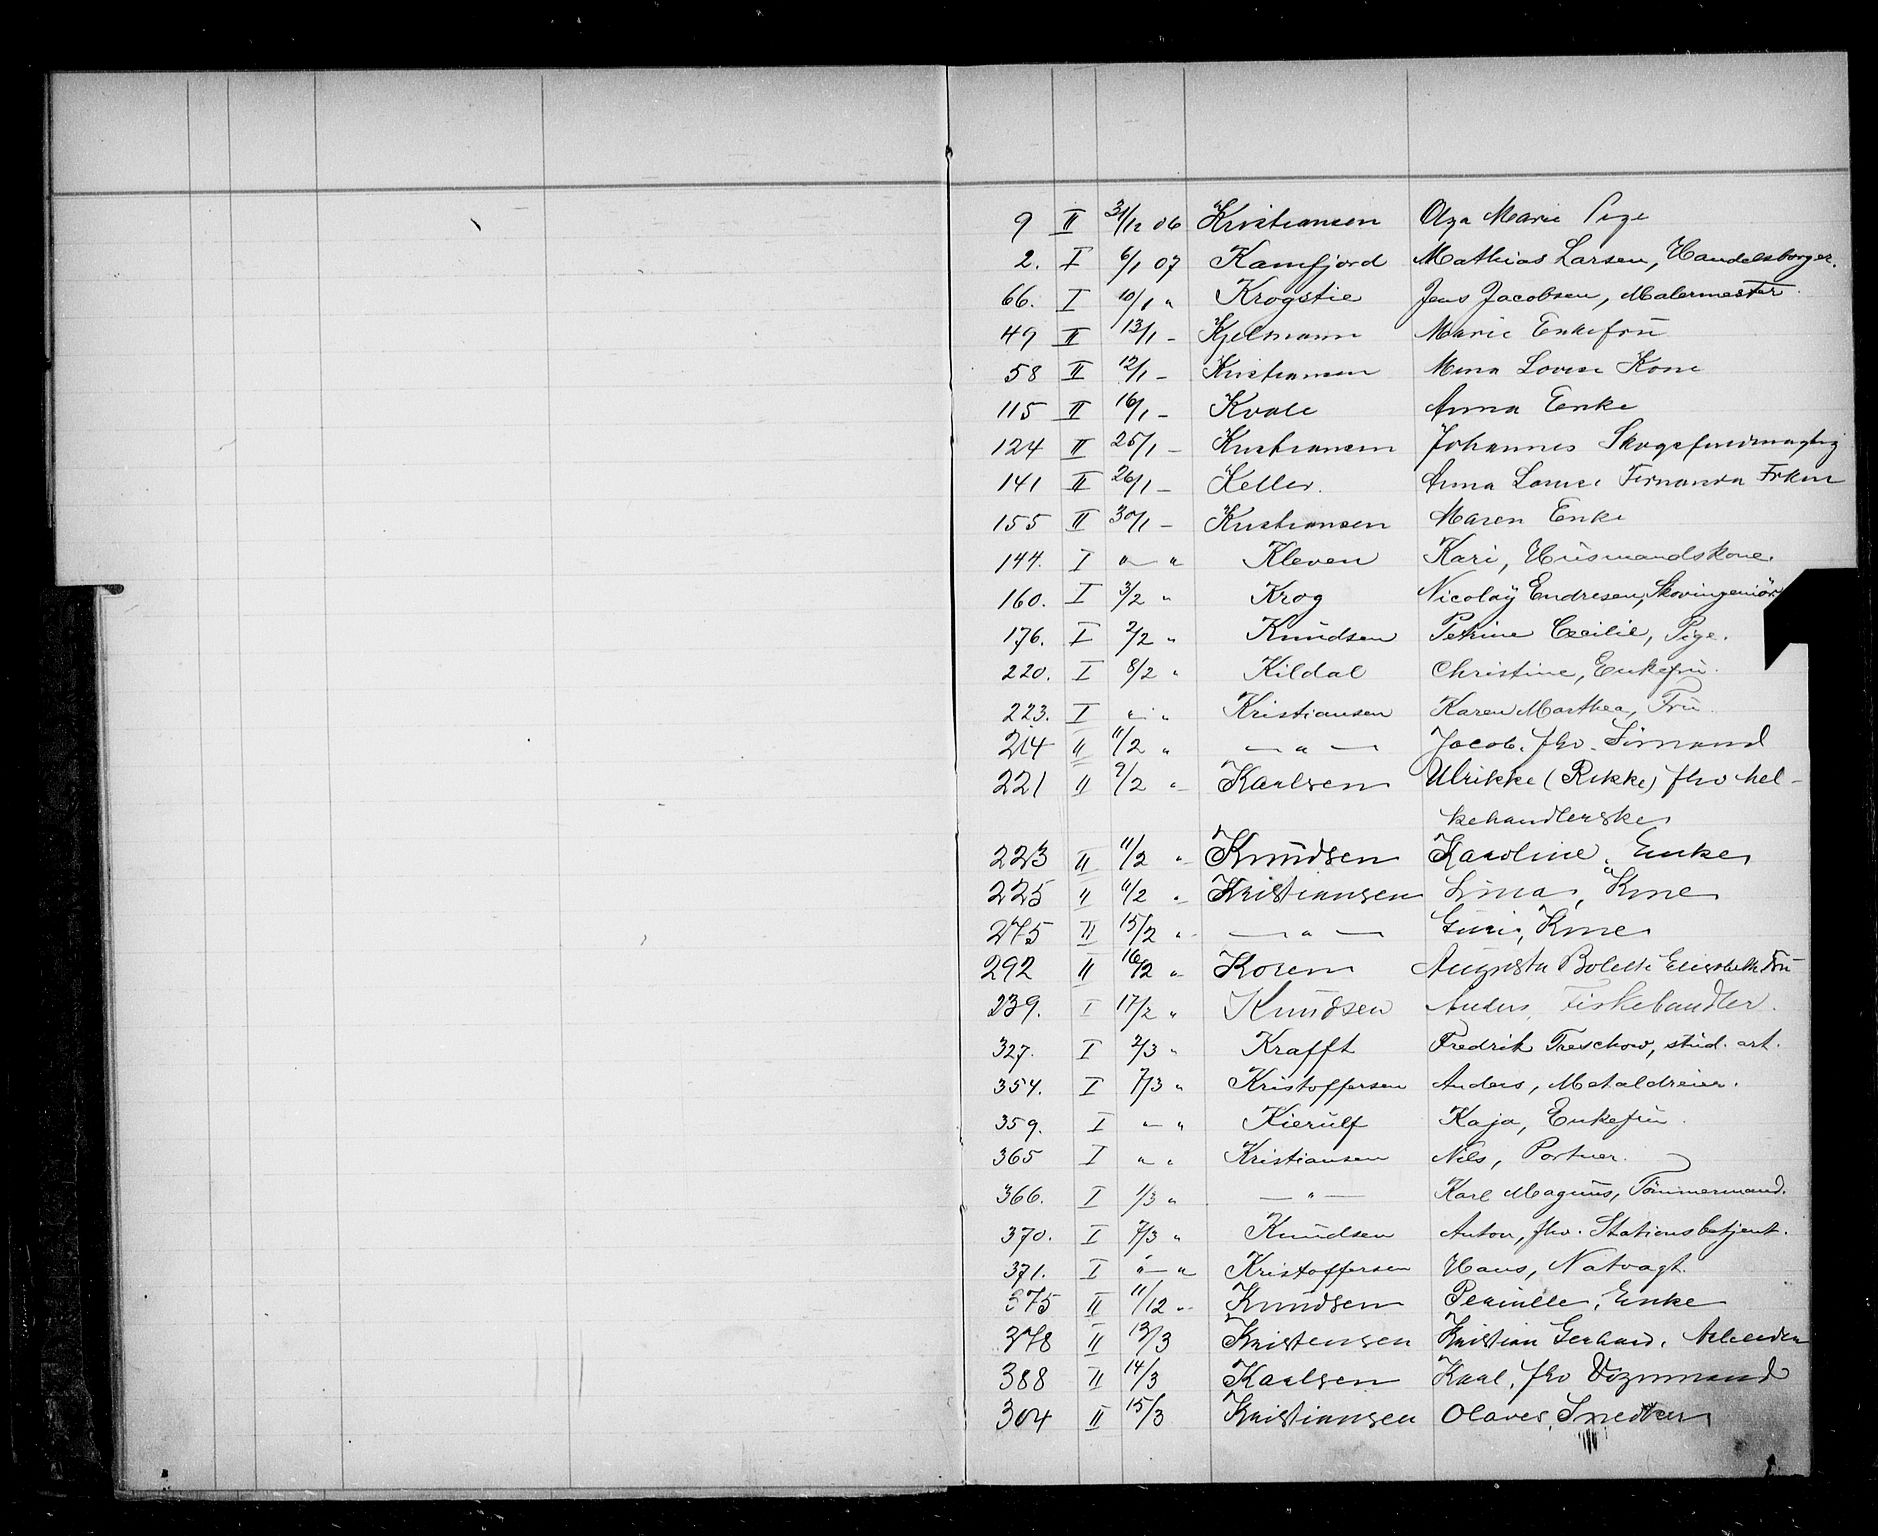 9 II 31/12 06 Kristiansen Olga Marie Pige
2. I 6/1 07 Kamfjord Mathias Larsen, Handelsborger.
66. I 10/1 " Krogstie Jens Jacobsen, Malermester.
49 II 13/1 - Kjelmann Marie Enkefrü
58 II 12/1 - Kristiansen Mina Lovise Kone
115 II 16/1 - Kvale Anna Enke
124 II 25/1 - Kristiansen Johannes Skogsfuldmægtig
141 II 26/1 - Keller. Anna Louise Fernanda Frken
155 II 30/1 - Kristiansen Maren Enke
144. I " " Kleven Kari, Husmandskone.
160. I 3/2 " Krog Nicolay Endresen, Skovingeniör
176. I 2/2 " Knudsen Petrine Cecilie, Pige.
220. I 8/2 " Kildal Christine, Enkefru.
223. I " " Kristiansen Karen Marthea, Fru.
214 II 11/2 " — " — Jacob. fhv. Sömand
221 II 9/2 " Karlsen Ulrikke (Rikke) fhv Mel-
kehandlerske
223 II 11/2 " Knudsen Karoline. Enke
225 II 11/2 " Kristiansen Lina, Kone
275 II 15/2 " — " — Guri, Kone
292 II 16/2 " Koren Augusta Bolette Elisabeth Fru
239. I 17/2 " Knudsen Anders, Fiskehandler.
327. I 2/3 " Krafft Fredrik Treschow, stud. art.
354. I 7/3 " Kristoffersen Anders, Metaldreier.
359. I " " Kierulf Kaja, Enkefru.
365 I " " Kristiansen Nils, Portner.
366. I 1/3 " — " — Karl Magnus, Tömmermand.
370. I 7/3 " Knudsen Anton, fhv. Stationsbetjent.
371. I " " Kristoffersen Hans, Natvagt.
375 II 11/12 " Knudsen Pernille, Enke
378 II 13/3 Kristensen Kristian Gerhard, Arbeider
388 II 14/3 Karlsen Karl, fhv Vognmand
304 II 15/3 Kristiansen Olaves, Snedker